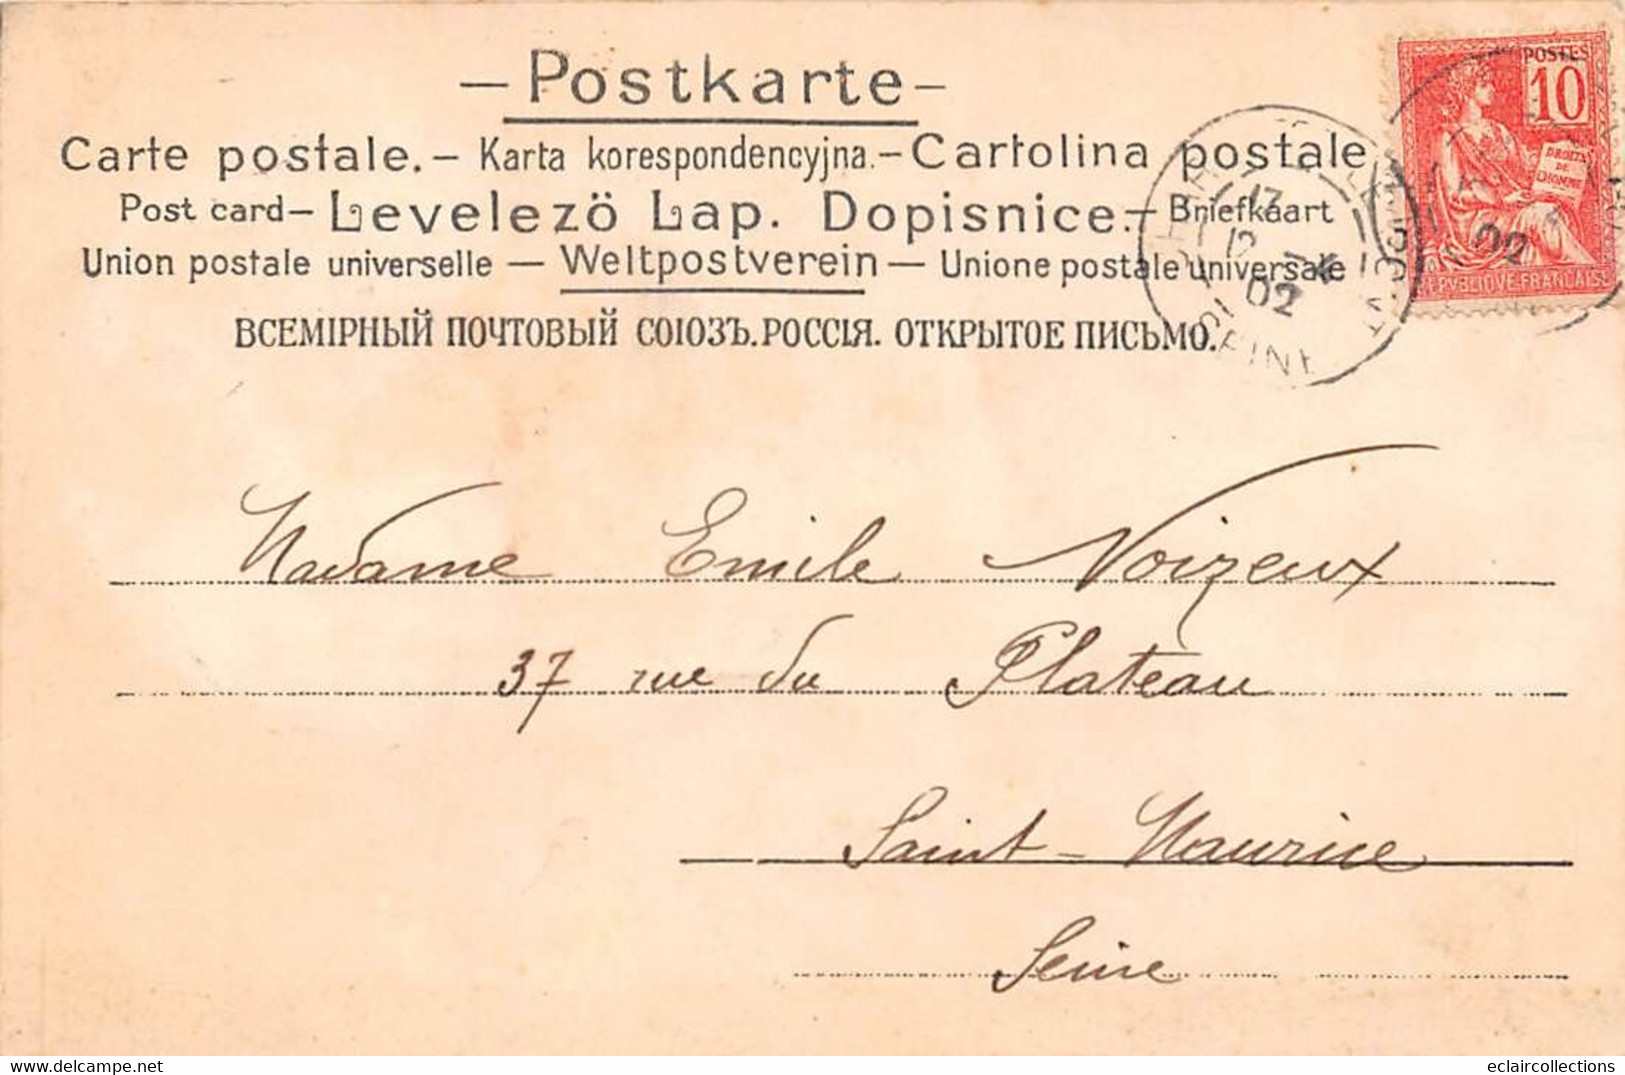 — Postkarte —
Carte postale. — Karta korespondencyjna. — Cartolina postale
Post card — Levelezö Lap. Dopisnice. — Briefkaart
Union postale universelle — Weltpostverein — Unione postale universale
ВСЕМІРНЫЙ ПОЧТОВЫЙ СОЮЗЪ. РОССІЯ. ОТКРЫТОЕ ПИСЬМО.
POSTES
10
DROITS
DE
L'HOMME
REPVBLIQVE FRANÇAISE
12
02
02
Madame Emile Noizeux
37 rue du Plateau
Saint-Maurice
Seine
eclaircollections